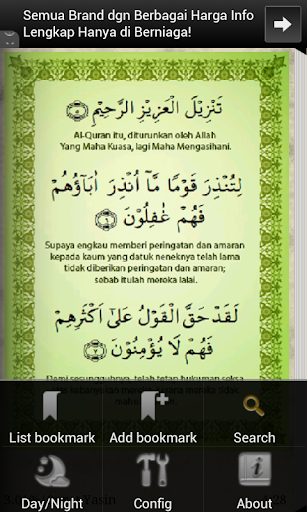 Semua Brand dgn Berbagai Harga Info
Lengkap Hanya di Berniaga!
تَنْزِيْلَ الْعَزِيْزِ الرَّحِيْمِ ۝٥
Al-Quran itu, diturunkan oleh Allah
Yang Maha Kuasa, lagi Maha Mengasihani.
لِتُنْذِرَ قَوْمًا مَّآ اُنْذِرَ اٰبَاۤؤُهُمْ
فَهُمْ غٰفِلُوْنَ ۝٦
Supaya engkau memberi peringatan dan amaran
kepada kaum yang datuk neneknya telah lama
tidak diberikan peringatan dan amaran;
sebab itulah mereka lalai.
لَقَدْ حَقَّ الْقَوْلُ عَلٰٓى اَكْثَرِهِمْ
فَهُمْ لَا يُؤْمِنُوْنَ ۝٧
Demi sesungguhnya, telah tetap hukuman seksa
kebanyakan mereka, kerana mereka tidak
List bookmark
Add bookmark
Search
Yasin
28
Day/Night
Config
About